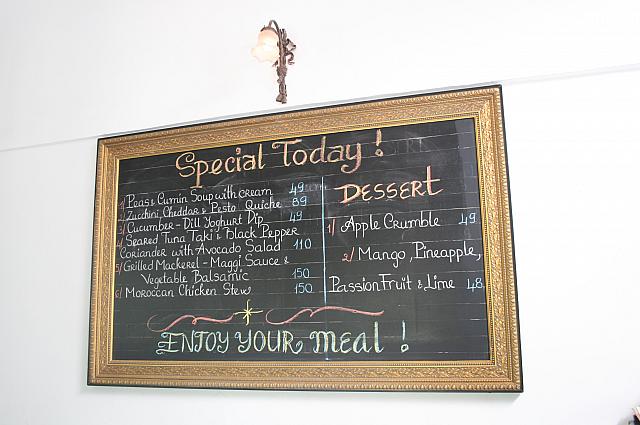 Special Today!
1/ Peas & Cumin Soup with cream 49
2/ Zucchini, Cheddar & Pesto Quiche 89
3/ Cucumber - Dill Yoghurt Dip 49
4/ Seared Tuna Taki & Black Pepper
Coriander with Avocado Salad 110
5/ Grilled Mackerel - Maggi Sauce &
Vegetable Balsamic 150
6/ Moroccan Chicken Stew 150
DESSERT
1/ Apple Crumble 49
2/ Mango, Pineapple,
Passion Fruit & Lime 48
ENJOY YOUR MEAL !